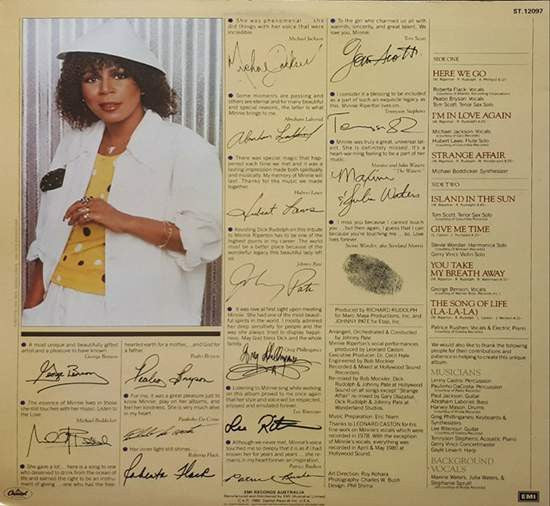 ST. 12097
● She was phenomenal ...she
did things with her voice that were
incredible.
Michael Jackson
Michael Jackson
● Some moments are passing and
others are eternal and for many beautiful
and special reasons, the latter is what
Minnie brings to me.
Abraham Laboriel
Abraham Laboriel
● There was special magic that hap-
pened each time we met and it was a
lasting impression made both spiritually
and musically. My memory of Minnie will
last. Thanks for the music we made
together.
Hubert Laws
Hubert Laws
● Assisting Dick Rudolph on this tribute
to Minnie Riperton has to be one of the
highest points in my career. The world
must be a better place because of the
wonderful legacy this beautiful lady left
us.
Johnny Pate
Johnny Pate
● It was love at first sight upon meeting
Minnie. She had one of the most beauti-
ful spirits in the world. I mostly admired
her deep sensitivity for people and the
way she always tried to display happi-
ness. May God bless Dick and the whole
family.
Greg Phillinganes
● Listening to Minnie sing while working
on this album proved to me once again
that her style and voice will be respected,
enjoyed and emulated forever.
Lee Ritenour
Lee Rit
● Although we never met, Minnie's voice
touched me so deeply that it is as if I had
known her for years and years ... she re-
mains in my heart forever an inspiration.
Patrice Rushen
Patrice Rushen
● To the girl who charmed us all with
warmth, sincerity, and great talent. We
love you, Minnie.
Tom Scott
Tom Scott
● I consider it a blessing to be included
as a part of such an exquisite legacy as
this. Minnie Riperton lives on.
Tennyson Stephens
● Minnie was truly a great, universal tal-
ent. She is definitely missed. It's a
heart-warming feeling to be a part of her
music.
Maxine and Julia Waters
"The Waters"
Maxine
& Julia Waters
● I miss you because I cannot touch
you ... but then again, I guess that I can
because you're touching me ... so, Love
lives forever.
Stevie Wonder, aka Steveland Morris
● A most unique and beautifully gifted
artist and a pleasure to have known.
George Benson
George Benson
● The essence of Minnie lives in those
she still touches with her music. Listen to
the Love.
Michael Boddicker
● She gave a lot... here is a song to one
so destined to drink from the ocean of
life and earned the right to be an instru-
ment of giving ...one who has the free-
hearted earth for a mother, and God for
a father.
Peabo Bryson
Peabo Bryson
● For me, it was a great pleasure just to
know Minnie, play on her albums, and
feel her kindness. She is very much alive
in my heart.
Paulinho Da Costa
● Her inner light still shines.
Roberta Flack
Roberta Flack
Produced by RICHARD RUDOLPH
for Mars Maya Productions, Inc. and
JOHNNY PATE for Espy, Inc.
Arranged, Orchestrated & Conducted
by Johnny Pate
Minnie Riperton's vocal performances
produced & conducted by
Leonard Caston
Executive Producer: Dr. Cecil Hale
Engineered by Bob Mockler
Recorded & Mixed at Hollywood Sound
Recorders
Music Preparation: Eric Team
Thanks to LEONARD CASTON for his
fine work on Minnie's vocals which were
recorded in 1978. With the exception
of Minnie's vocals, everything was
recorded in April and May, 1980 at
Hollywood Sound.
Art Direction: Roy Kohara
Photography: Charles W. Bush
Design: Phil Shima
SIDE ONE
HERE WE GO
Roberta Flack: Vocals
Peabo Bryson: Vocals
Tom Scott: Tenor Sax Solo
I'M IN LOVE AGAIN
Michael Jackson: Vocals
Hubert Laws: Flute Solo
STRANGE AFFAIR
Michael Boddicker: Synthesizer
SIDE TWO
ISLAND IN THE SUN
Tom Scott: Tenor Sax Solo
GIVE ME TIME
Stevie Wonder: Harmonica Solo
Gerry Vinci: Violin Solo
YOU TAKE
MY BREATH AWAY
George Benson: Vocals
THE SONG OF LIFE
(LA-LA-LA)
Patrice Rushen: Vocals & Electric Piano
We would also like to thank the following
people for their contributions and
patience in helping to create this unique
album.
MUSICIANS
Lenny Castro: Percussion
Paulinho DaCosta: Percussion
Paul Jackson: Guitar
Abraham Laboriel: Bass
Harvey Mason: Drums
Greg Phillinganes: Keyboards &
Synthesizers
Lee Ritenour: Guitar
Tennyson Stephens: Acoustic Piano
Gerry Vinci: Concertmaster
Gayle Levant: Harp
BACKGROUND
VOCALS
Maxine Waters, Julia Waters, &
Stephanie Spruill
Capitol
EMI RECORDS AUSTRALIA
EMI